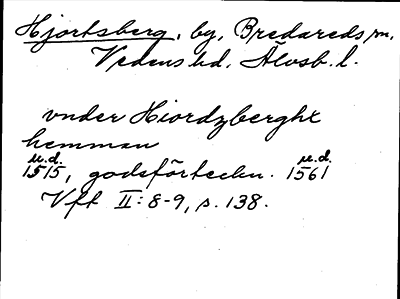 Hjortsberg, by, Bredareds sn,
Vedens hd, Älvsb. l.
vnder Hiordzberghx
hemman
u.d. u.d.
1515, godsförteckn. 1561
Vft II: 8-9, s. 138.